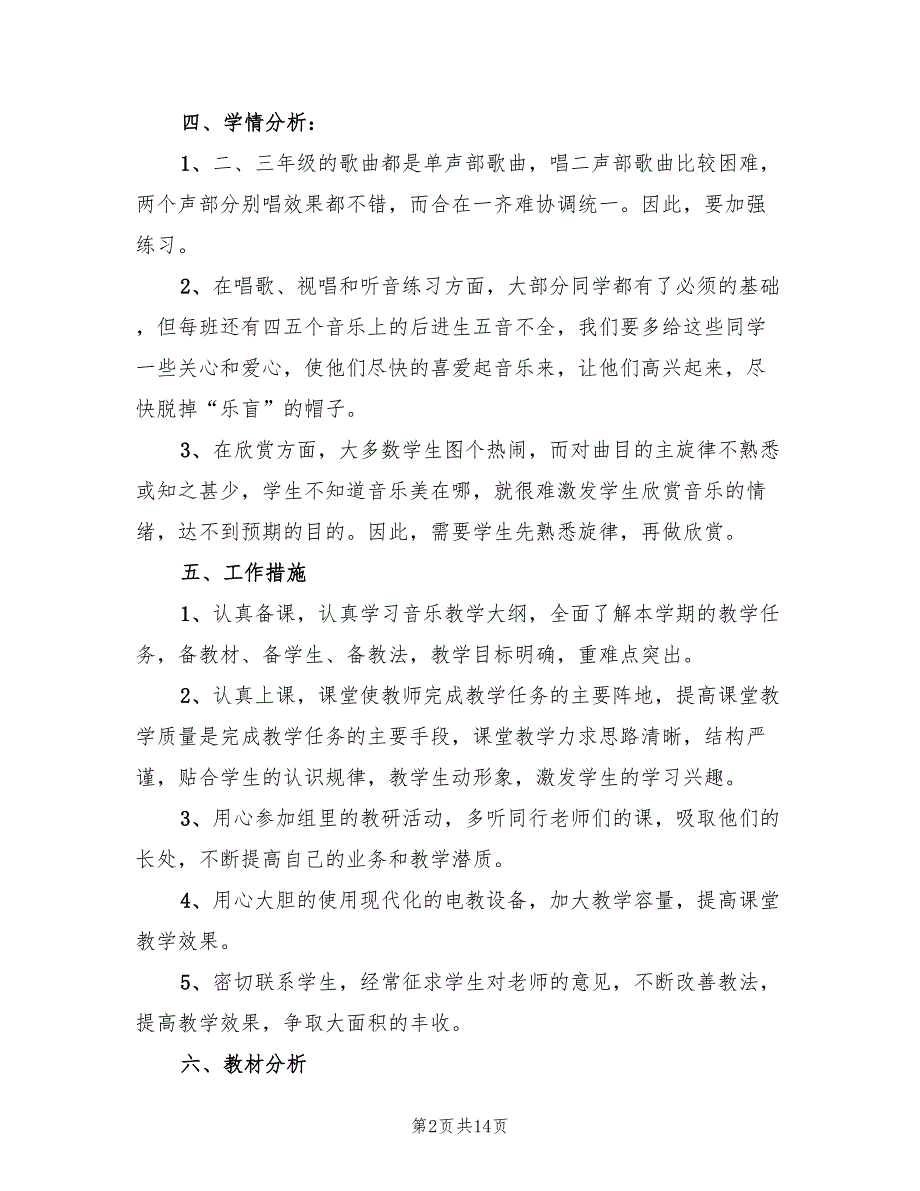 四、学情分析：
1、二、三年级的歌曲都是单声部歌曲，唱二声部歌曲比较困难，
两个声部分别唱效果都不错，而合在一齐难协调统一。因此，要加强
练习。
2、在唱歌、视唱和听音练习方面，大部分同学都有了必须的基础
，但每班还有四五个音乐上的后进生五音不全，我们要多给这些同学
一些关心和爱心，使他们尽快的喜爱起音乐来，让他们高兴起来，尽
快脱掉“乐盲”的帽子。
3、在欣赏方面，大多数学生图个热闹，而对曲目的主旋律不熟悉
或知之甚少，学生不知道音乐美在哪，就很难激发学生欣赏音乐的情
绪，达不到预期的目的。因此，需要学生先熟悉旋律，再做欣赏。
五、工作措施
1、认真备课，认真学习音乐教学大纲，全面了解本学期的教学任
务，备教材、备学生、备教法，教学目标明确，重难点突出。
2、认真上课，课堂使教师完成教学任务的主要阵地，提高课堂教
学质量是完成教学任务的主要手段，课堂教学力求思路清晰，结构严
谨，贴合学生的认识规律，教学生动形象，激发学生的学习兴趣。
3、用心参加组里的教研活动，多听同行老师们的课，吸取他们的
长处，不断提高自己的业务和教学潜质。
4、用心大胆的使用现代化的电教设备，加大教学容量，提高课堂
教学效果。
5、密切联系学生，经常征求学生对老师的意见，不断改善教法，
提高教学效果，争取大面积的丰收。
六、教材分析
第2页共14页